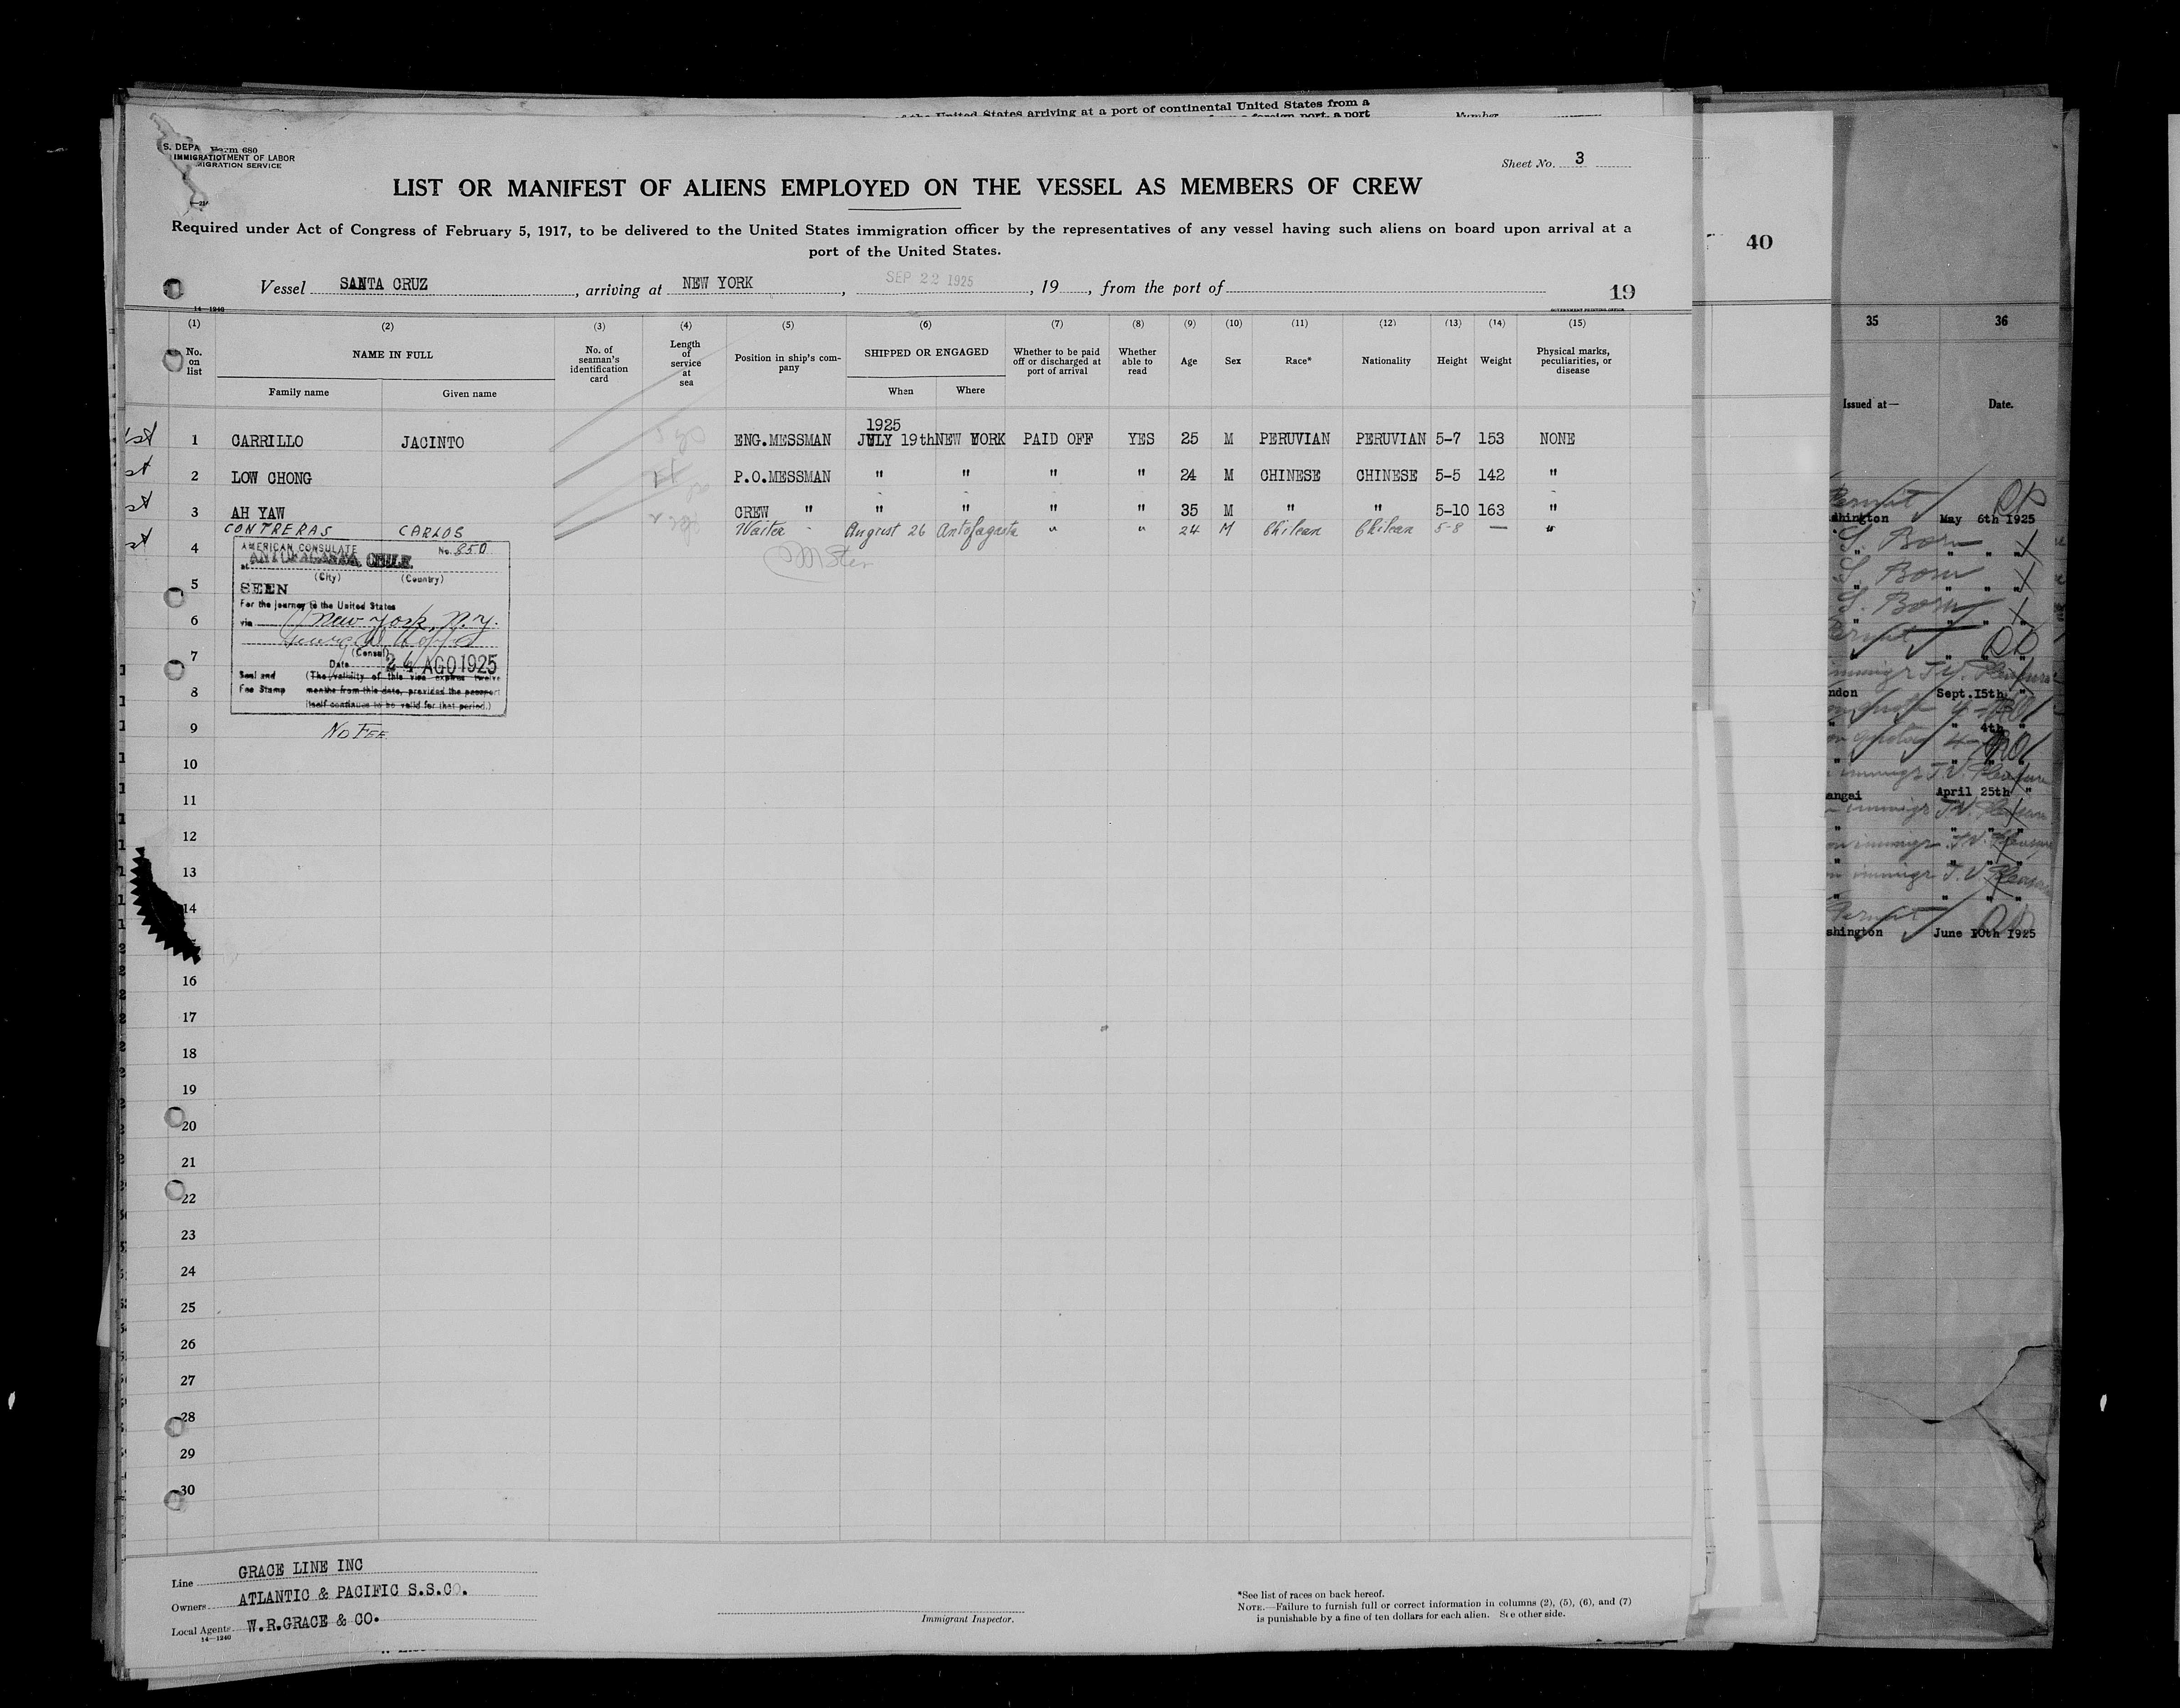 of the United States arriving at a port of continental United States from a
foreign port, a port
Number
S. DEPA Form 680
IMMIGRATIO TMENT OF LABOR
MIGRATION SERVICE
Sheet No. 3
LIST OR MANIFEST OF ALIENS EMPLOYED ON THE VESSEL AS MEMBERS OF CREW
Required under Act of Congress of February 5, 1917, to be delivered to the United States immigration officer by the representatives of any vessel having such aliens on board upon arrival at a
port of the United States.
Vessel SANTA CRUZ, arriving at NEW YORK, SEP 22 1925, 19, from the port of
19
14—1240
GOVERNMENT PRINTING OFFICE
(1) (2) (3) (4) (5) (6) (7) (8) (9) (10) (11) (12) (13) (14) (15)
No. on list
NAME IN FULL
Family name
Given name
No. of seaman's identification card
Length of service at sea
Position in ship's company
SHIPPED OR ENGAGED
When
Where
Whether to be paid off or discharged at port of arrival
Whether able to read
Age
Sex
Race*
Nationality
Height
Weight
Physical marks, peculiarities, or disease
1925
1st 1 CARRILLO JACINTO ENG.MESSMAN JULY 19th NEW YORK PAID OFF YES 25 M PERUVIAN PERUVIAN 5-7 153 NONE
st 2 LOW CHONG P.O.MESSMAN " " " " 24 M CHINESE CHINESE 5-5 142 "
st 3 AH YAW CREW " " " " " 35 M " " 5-10 163 "
st 4 CONTRERAS CARLOS Waiter August 26 Antofagasta " " 24 M Chilean Chilean 5-8 — "
AMERICAN CONSULATE No. 850
at ANTOFAGASTA, CHILE.
(City) (Country)
SEEN
For the journey to the United States
via New York, N.Y.
(Consul)
Date 24 AGO 1925
Seal and Fee Stamp
(The validity of this visa expires twelve
months from this date, provided the passport
itself continues to be valid for that period.)
No FEE
5
6
7
8
9
10
11
12
13
14
16
17
18
19
20
21
22
23
24
25
26
27
28
29
30
Line GRACE LINE INC
Owners ATLANTIC & PACIFIC S.S.CO.
Local Agents W.R.GRACE & CO.
14—1240
Immigrant Inspector.
*See list of races on back hereof.
NOTE.—Failure to furnish full or correct information in columns (2), (5), (6), and (7)
is punishable by a fine of ten dollars for each alien. See other side.
40
35 36
Issued at— Date.
Permit
shington May 6th 1925
S. Born " "
S. Born " "
S. Born " "
ndon Sept.15th "
" 4th "
angai April 25th "
Permit
shington June 10th 1925